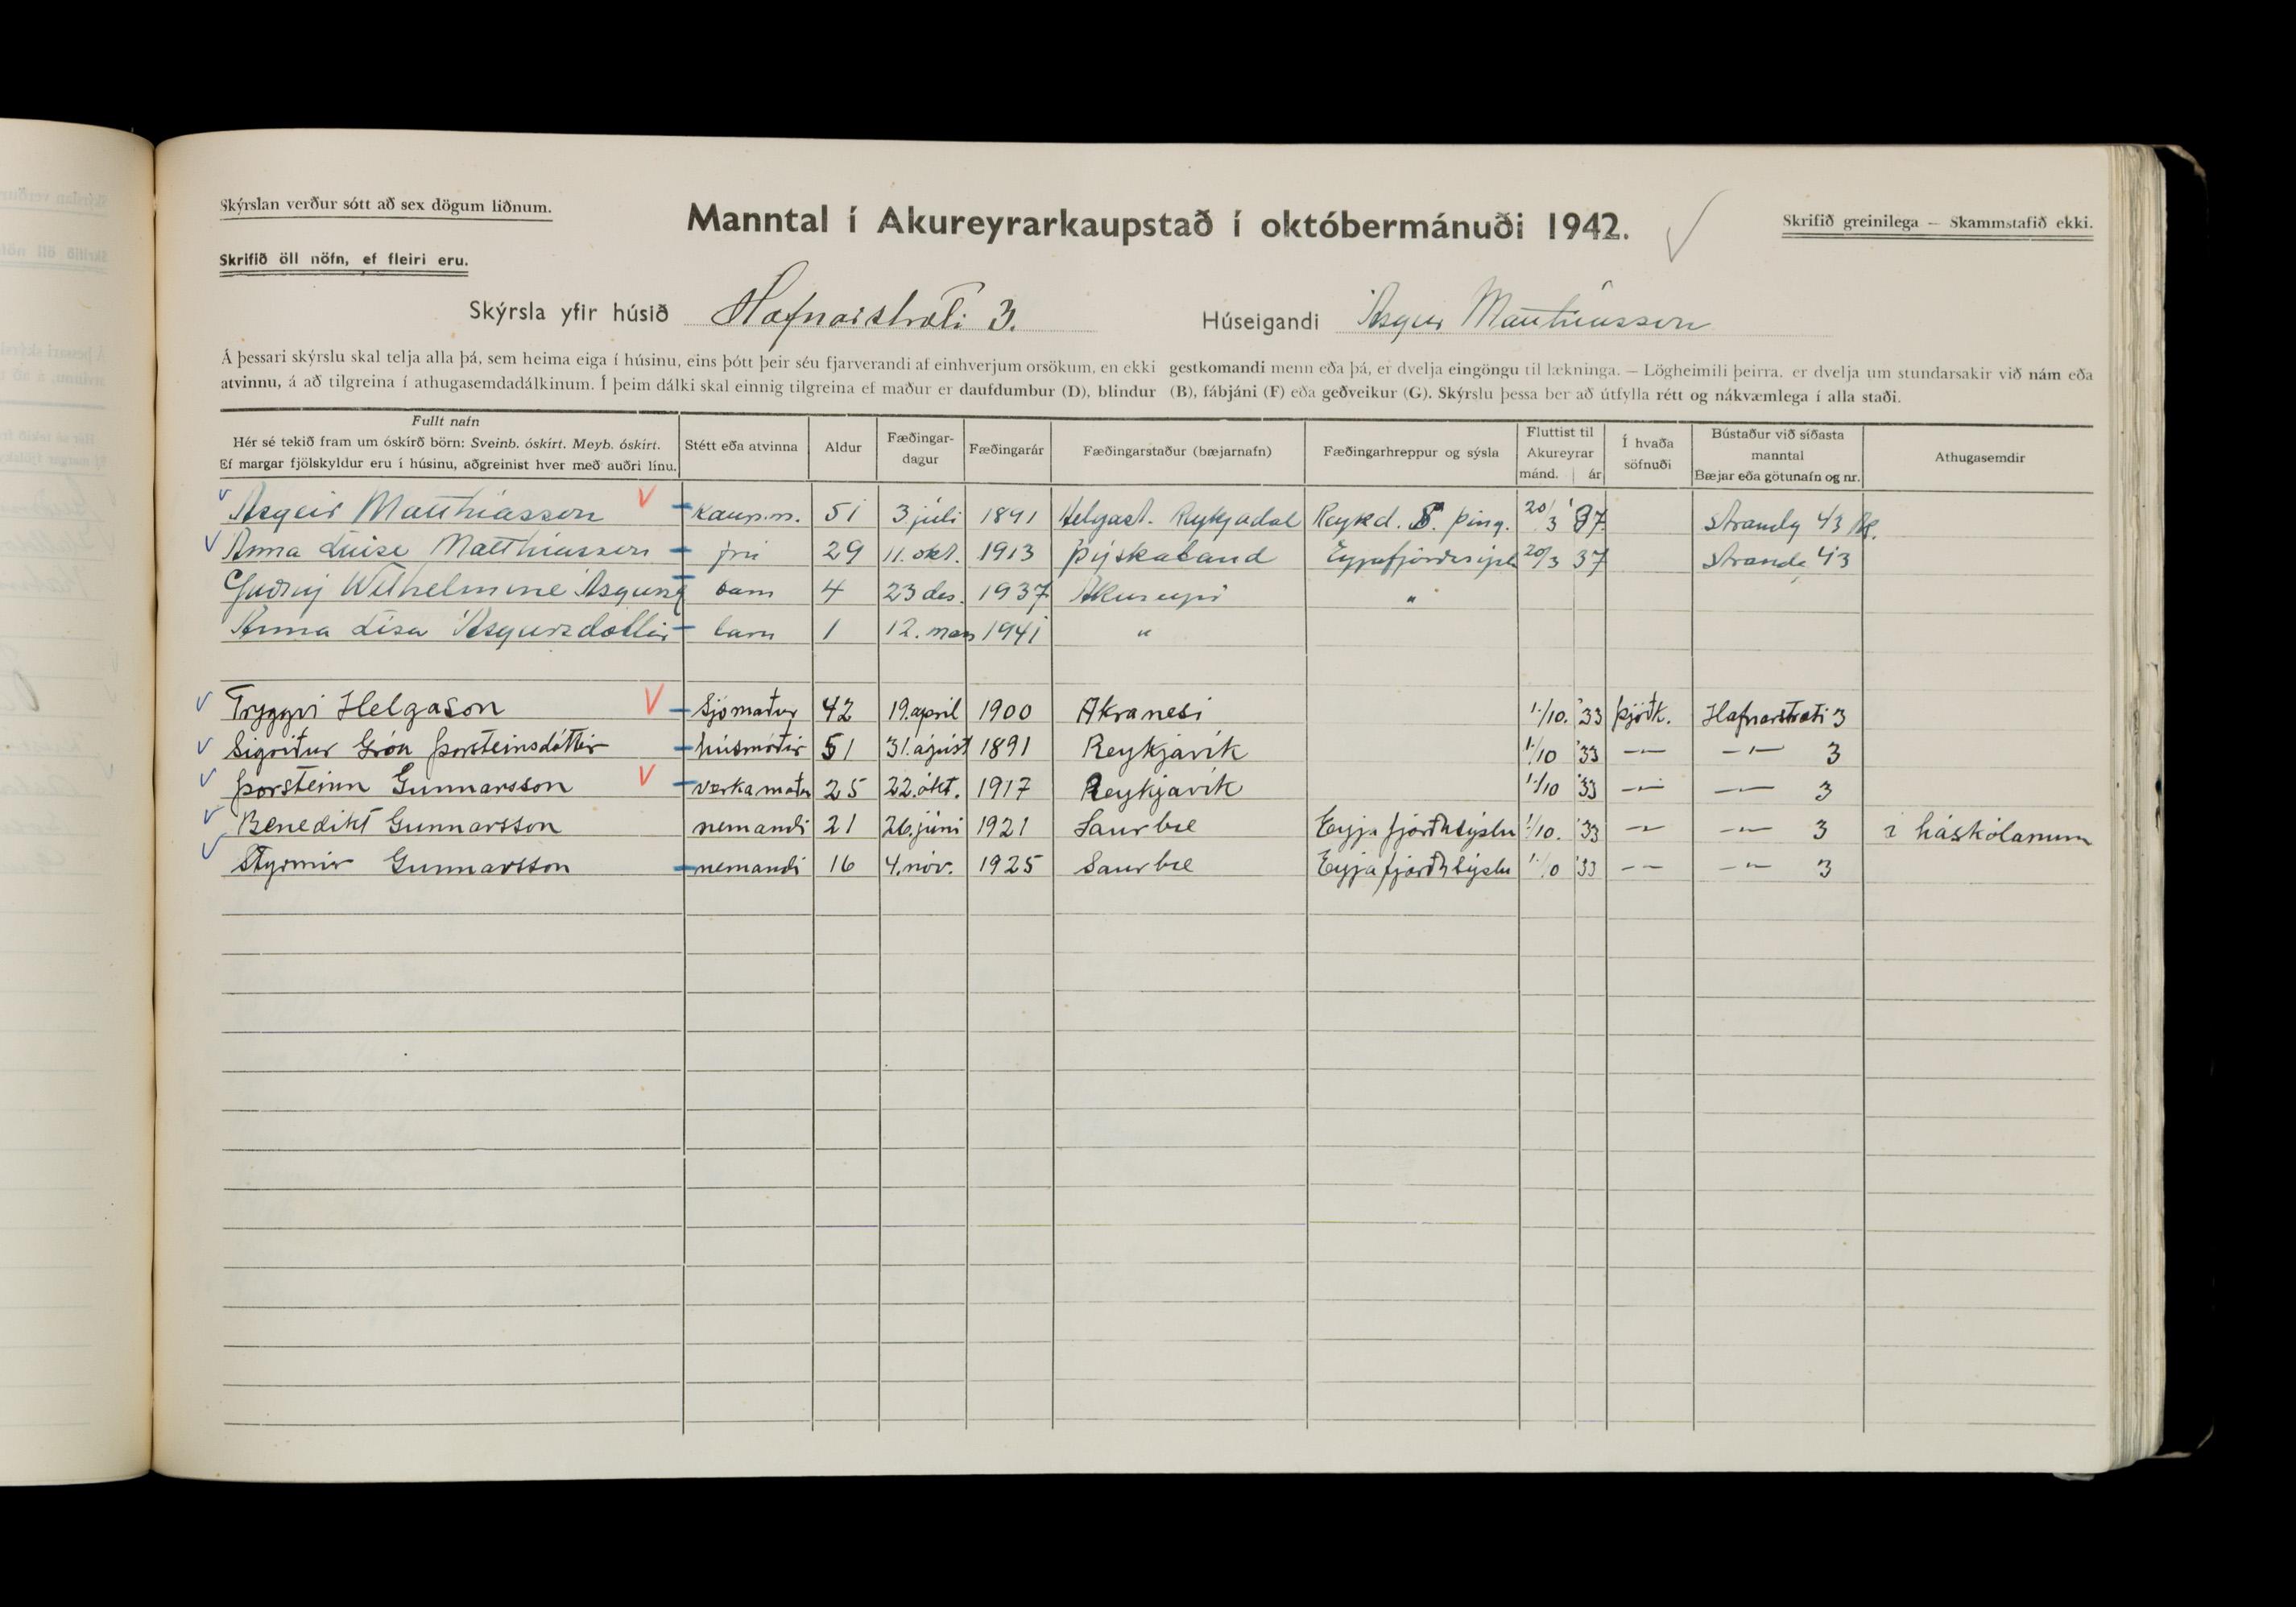 Skýrslan verður sótt að sex dögum liðnum.
Manntal í Akureyrarkaupstað í októbermánuði 1942.
Skrifið greinilega — Skammstafið ekki.
Skrifið öll nöfn, ef fleiri eru.
Skýrsla yfir húsið Hafnarstræti 3. Húseigandi Ásgeir Matthíasson
Á þessari skýrslu skal telja alla þá, sem heima eiga í húsinu, eins þótt þeir séu fjarverandi af einhverjum orsökum, en ekki gestkomandi menn eða þá, er dvelja eingöngu til lækninga. — Lögheimili þeirra, er dvelja um stundarsakir við nám eða
atvinnu, á að tilgreina í athugasemdadálkinum. Í þeim dálki skal einnig tilgreina ef maður er daufdumbur (D), blindur (B), fábjáni (F) eða geðveikur (G). Skýrslu þessa ber að útfylla rétt og nákvæmlega í alla staði.
Fullt nafn
Hér sé tekið fram um óskírð börn: Sveinb. óskírt. Meyb. óskírt.
Ef margar fjölskyldur eru í húsinu, aðgreinist hver með auðri línu.
Stétt eða atvinna
Aldur
Fæðingar-
dagur
Fæðingarár
Fæðingarstaður (bæjarnafn)
Fæðingarhreppur og sýsla
Fluttist til
Akureyrar
mánd. ár
Í hvaða
söfnuði
Bústaður við síðasta
manntal
Bæjar eða götunafn og nr.
Athugasemdir
Ásgeir Matthíasson kaupm. 51 3. júlí 1891 Helgast. Reykjadal Reykd. S. Þing. 20/3 '37 Strandg 43 Ak.
Anna Luise Matthíasson frú 29 11. okt. 1913 Þýskaland Eyjafjörðursýsla 20/3 37 Strandg 43
Guðný Wilhelmine Ásgeirsd barn 4 23 des. 1937 Akureyri "
Anna Lísa Ásgeirsdóttir barn 1 12. mars 1941 "
Tryggvi Helgason Sjómaður 42 19. apríl 1900 Akranesi 1/10. '33 Þjóðk. Hafnarstræti 3
Sigríður Gróa Þorsteinsdóttir húsmóðir 51 31. ágúst 1891 Reykjavík 1/10 '33 —"— —"— 3
Þorsteinn Gunnarsson verkamaður 25 22. okt. 1917 Reykjavík 1/10 '33 —"— —"— 3
Benedikt Gunnarsson nemandi 21 26. júní 1921 Saurbæ Eyjafjarðarsýslu 1/10. '33 —"— —"— 3 í háskólanum
Styrmir Gunnarsson nemandi 16 4. nóv. 1925 Saurbæ Eyjafjarðarsýslu 1/10 '33 —"— —"— 3